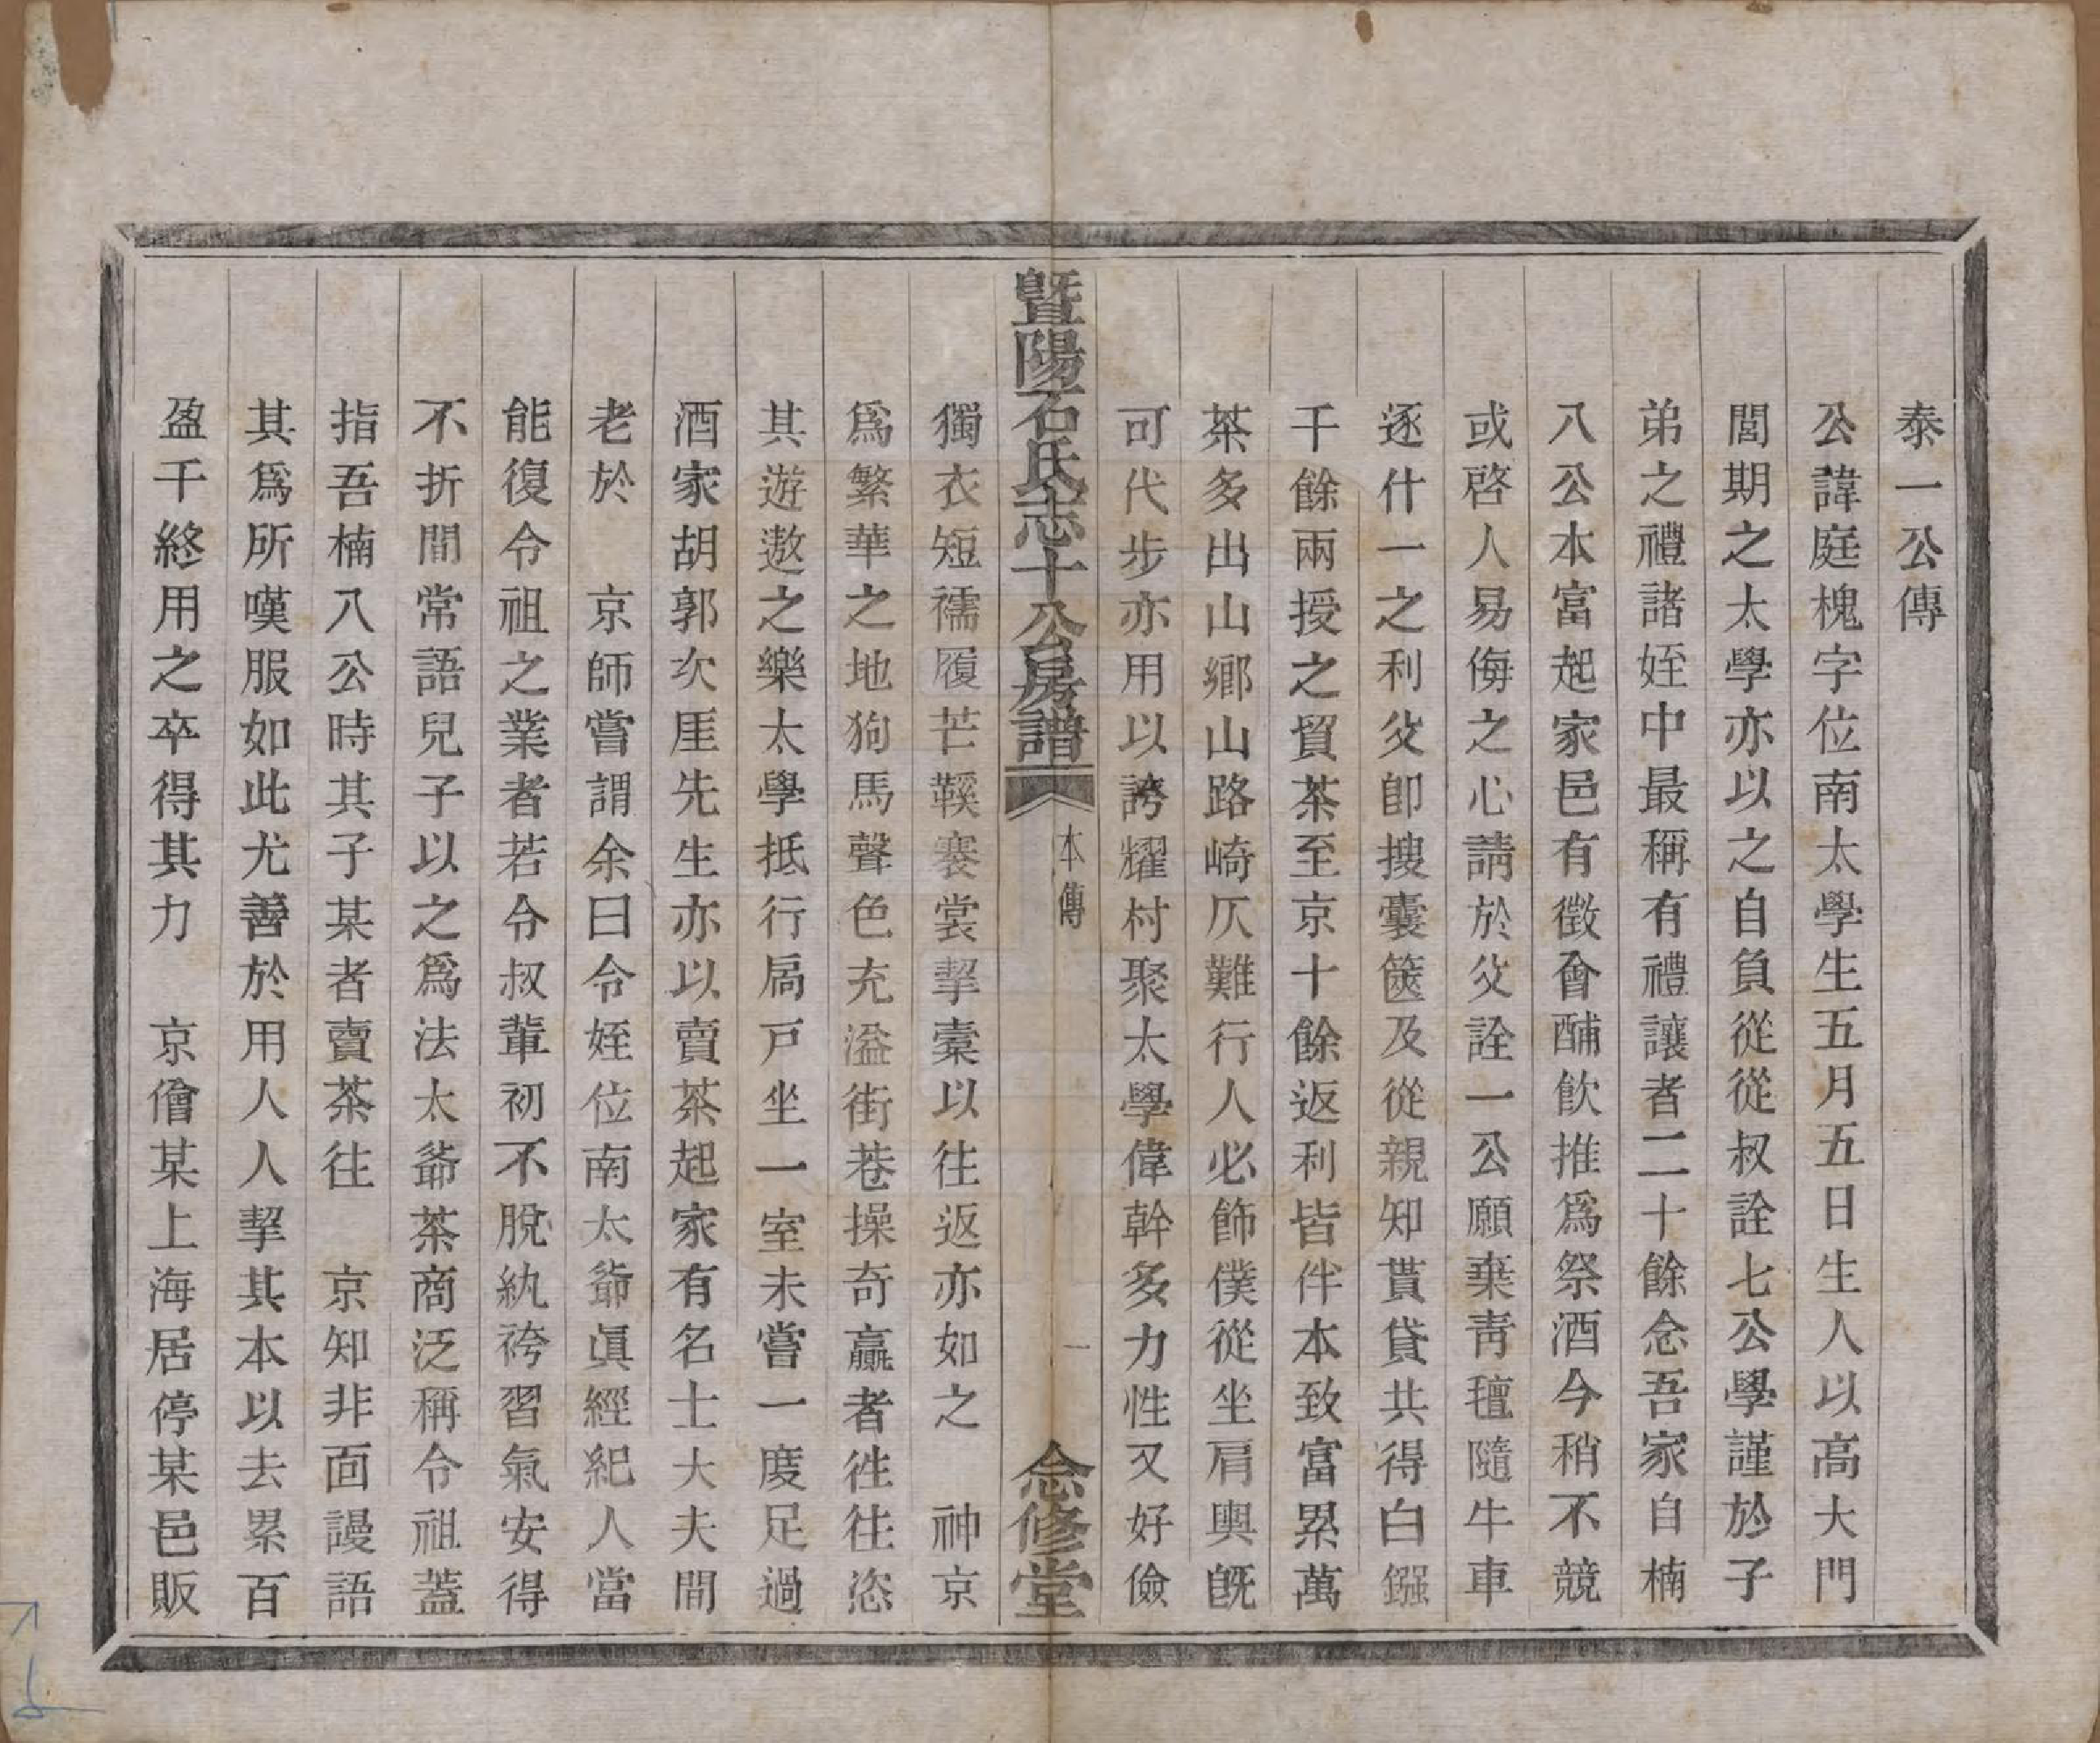 泰一公傳
公諱庭槐字位南太學生五月五日生人以高大門
閭期之太學亦以之自負從從叔詮七公學謹於子
弟之禮諸姪中最稱有禮讓者二十餘念吾家自楠
八公本富起家邑有徵會酺飲推爲祭酒今稍不競
或啓人易侮之心請於父詮一公願棄靑氊隨牛車
逐什一之利父卽搜囊篋及從親知貰貸共得白鏹
千餘兩授之貿茶至京十餘返利皆伴本致富累萬
茶多出山鄉山路崎仄難行人必飾僕從坐肩輿旣
可代步亦用以誇耀村聚太學偉幹多力性又好儉
暨陽石氏志十公房譜
本傳
一
念修堂
獨衣短襦履芒鞵褰裳挈橐以往返亦如之　神京
爲繁華之地狗馬聲色充溢街巷操奇贏者徃往恣
其遊遨之樂太學抵行扃戸坐一室未嘗一度足過
酒家胡郭次厓先生亦以賣茶起家有名士大夫間
老於　京師嘗謂余曰令姪位南太爺眞經紀人當
能復令祖之業者若令叔輩初不脫紈袴習氣安得
不折閱常語兒子以之爲法太爺茶商泛稱令祖蓋
指吾楠八公時其子某者賣茶往　京知非面謾語
其爲所嘆服如此尤善於用人人挈其本以去累百
盈千終用之卒得其力　京儈某上海居停某邑販